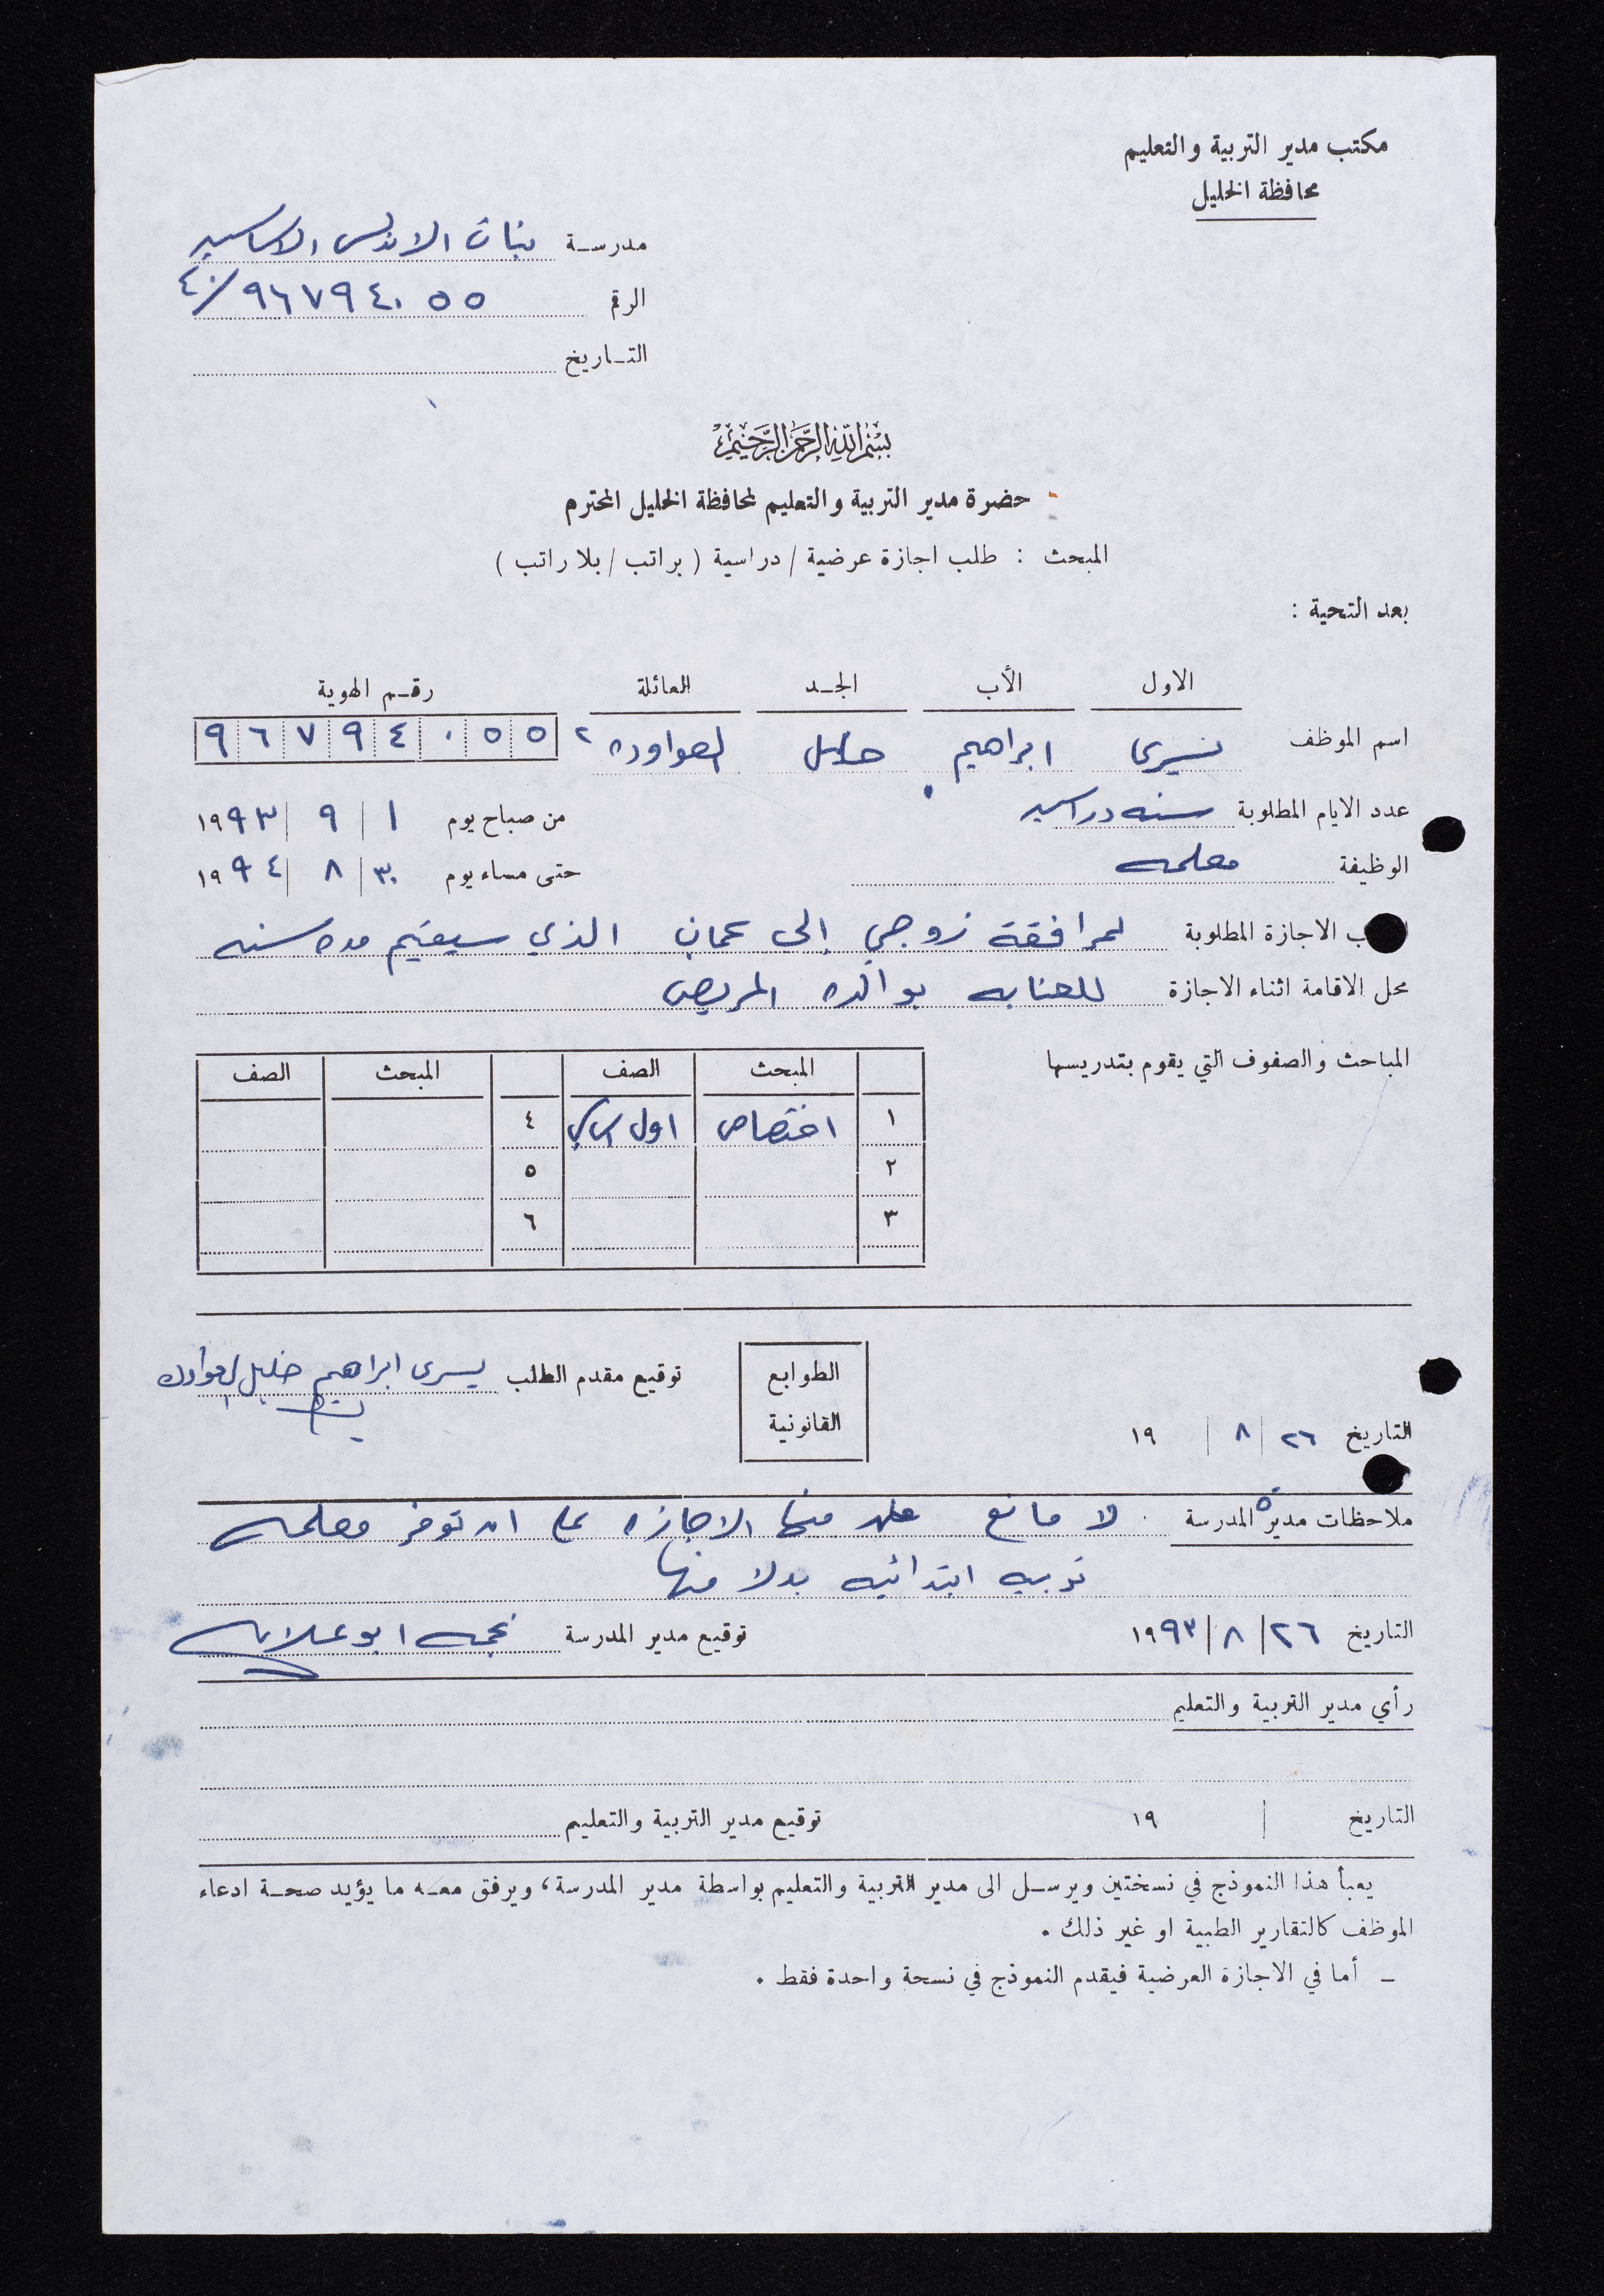 مكتب مدير التربية والتعليم
محافظة الخليل
مدرسة بنات الاندلس الاساسيه
الرقم ٩٦٧٩٤٠٥٥ /٤٠
التاريخ
بسم الله الرحمن الرحيم
حضرة مدير التربية والتعليم لمحافظة الخليل المحترم
المبحث : طلب اجازة عرضية / دراسية ( براتب / بلا راتب )
بعد التحية :
الاول الأب الجد العائلة رقم الهوية
اسم الموظف يسرى ابراهيم خليل العواوده ٩٦٧٩٤٠٥٥ ٢
عدد الايام المطلوبة سنه دراسيه من صباح يوم ١ / ٩ / ١٩٩٣
الوظيفة معلمه حتى مساء يوم ٣٠ / ٨ / ١٩٩٤
ب الاجازة المطلوبة لمرافقة زوجي إلى عمان الذي سيقيم مده سنه
محل الاقامة اثناء الاجازة للعنايه بوالده المريض
المباحث والصفوف التي يقوم بتدريسها
المبحث الصف المبحث الصف
١ اختصاص اول اساسي ٤
٢ ٥
٣ ٦
الطوابع
القانونية
توقيع مقدم الطلب يسرى ابراهيم خليل العواوده
التاريخ ٢٦ / ٨ / ١٩
ملاحظات مديرة المدرسة لا مانع من منحها الاجازه على ان توفر معلمه
تربيه ابتدائيه بدلا منها
التاريخ ٢٦ / ٨ / ١٩٩٣ توقيع مدير المدرسة نجمه ابو علان
رأي مدير التربية والتعليم
التاريخ / ١٩ توقيع مدير التربية والتعليم
يعبأ هذا النموذج في نسختين ويرسل الى مدير التربية والتعليم بواسطة مدير المدرسة، ويرفق معه ما يؤيد صحة ادعاء
الموظف كالتقارير الطبية او غير ذلك .
- أما في الاجازة العرضية فيقدم النموذج في نسخة واحدة فقط .